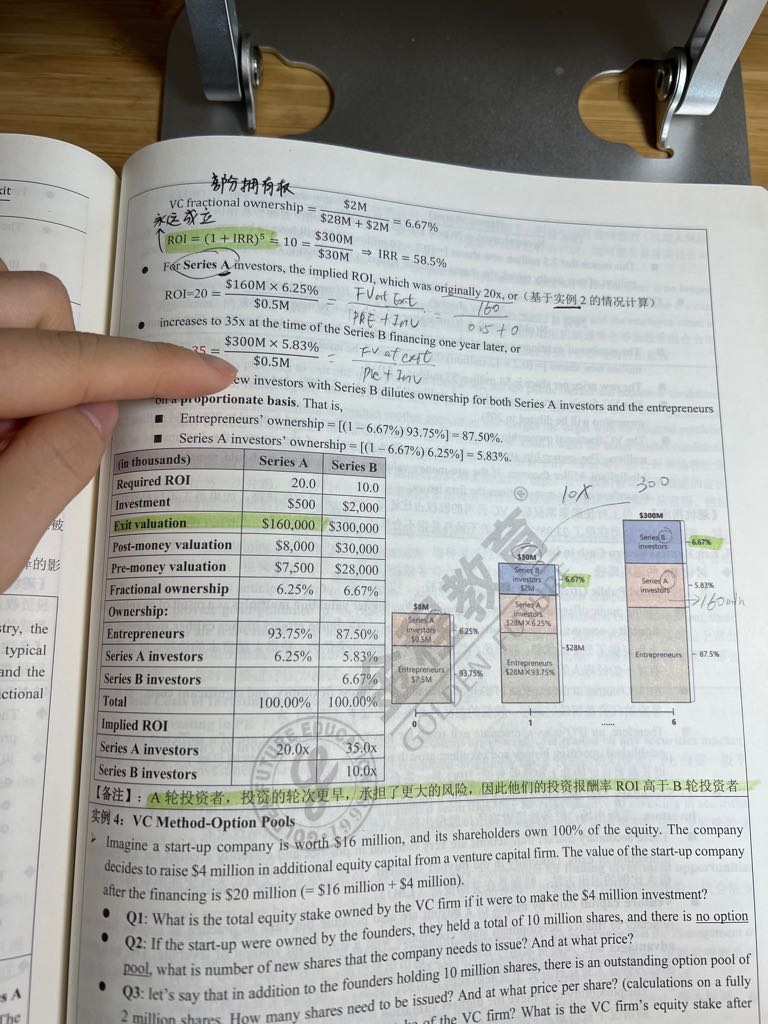 部分拥有权
VC fractional ownership = $2M / ($28M + $2M) = 6.67%
永远成立
ROI = (1 + IRR)^5 = 10 = $300M / $30M ⇒ IRR = 58.5%
● For Series A investors, the implied ROI, which was originally 20x, or (基于实例 2 的情况计算)
ROI=20 = ($160M × 6.25%) / $0.5M = FV at Exit / PRE + Inv = 160 / 0.5 + 0
● increases to 35x at the time of the Series B financing one year later, or
35 = ($300M × 5.83%) / $0.5M = FV at exit / Pre + Inv
ew investors with Series B dilutes ownership for both Series A investors and the entrepreneurs
on a proportionate basis. That is,
■ Entrepreneurs' ownership = [(1 − 6.67%) 93.75%] = 87.50%.
■ Series A investors' ownership = [(1 − 6.67%) 6.25%] = 5.83%.
(in thousands) Series A Series B
Required ROI 20.0 10.0
Investment $500 $2,000
Exit valuation $160,000 $300,000
Post-money valuation $8,000 $30,000
Pre-money valuation $7,500 $28,000
Fractional ownership 6.25% 6.67%
Ownership:
Entrepreneurs 93.75% 87.50%
Series A investors 6.25% 5.83%
Series B investors 6.67%
Total 100.00% 100.00%
Implied ROI
Series A investors 20.0x 35.0x
Series B investors 10.0x
10X
300
$8M
Series A
investors
$0.5M
6.25%
Entrepreneurs
$7.5M
93.75%
$30M
Series B
investors
$2M
6.67%
Series A
investors
$28M×6.25%
$28M
Entrepreneurs
$28M×93.75%
$300M
Series B
investors
6.67%
Series A
investors
5.83%
160
Entrepreneurs
87.5%
0 1 ...... 6
金程教育
GOLDEN FUTURE
【备注】:A 轮投资者,投资的轮次更早,承担了更大的风险,因此他们的投资报酬率 ROI 高于 B 轮投资者
实例 4: VC Method-Option Pools
➢ Imagine a start-up company is worth $16 million, and its shareholders own 100% of the equity. The company
decides to raise $4 million in additional equity capital from a venture capital firm. The value of the start-up company
after the financing is $20 million (= $16 million + $4 million).
● Q1: What is the total equity stake owned by the VC firm if it were to make the $4 million investment?
● Q2: If the start-up were owned by the founders, they held a total of 10 million shares, and there is no option
pool, what is number of new shares that the company needs to issue? And at what price?
● Q3: let's say that in addition to the founders holding 10 million shares, there is an outstanding option pool of
2 million shares. How many shares need to be issued? And at what price per share? (calculations on a fully
of the VC firm? What is the VC firm's equity stake after
xit
被
的影
stry, the
typical
and the
ctional
s A
The